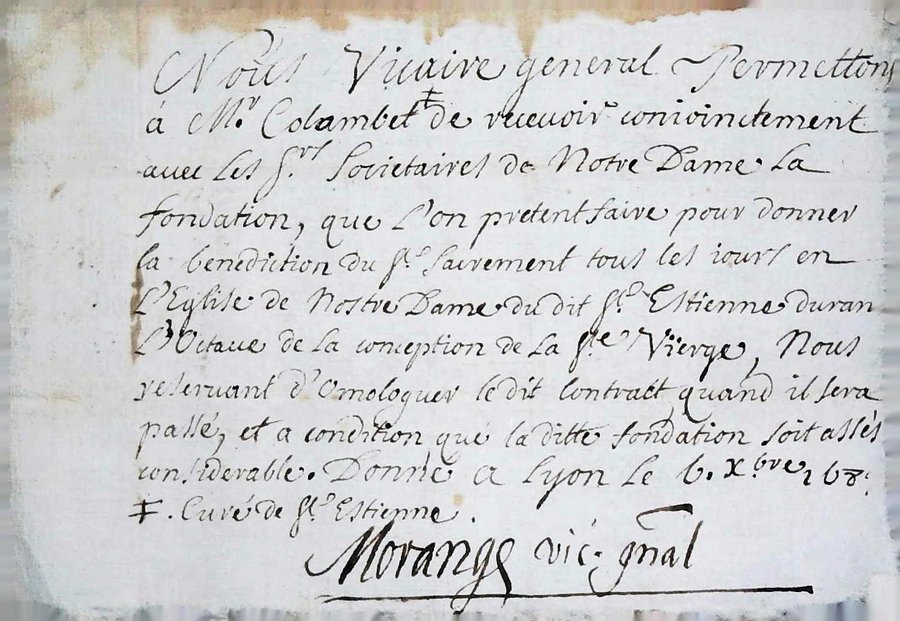 Nous Vicaire general Permettons
a Mr. Colambet ‡ de recevoir conioinctement
avec les Srs. Societaires de Notre Dame la
fondation, que l'on pretent faire pour donner
la benediction du St. Sacrement tous les iours en
l'Eglise de Nostre Dame du dit St. Estienne duran
l'Octave de la conception de la Ste Vierge, Nous
reservant d'omologuer le dit Contract quand il sera
passé, et a condition que la ditte fondation soit assés
considerable. Donné a Lyon le 6. Xbre 168
‡. Curé de St. Estienne.
Morange vic. gnal